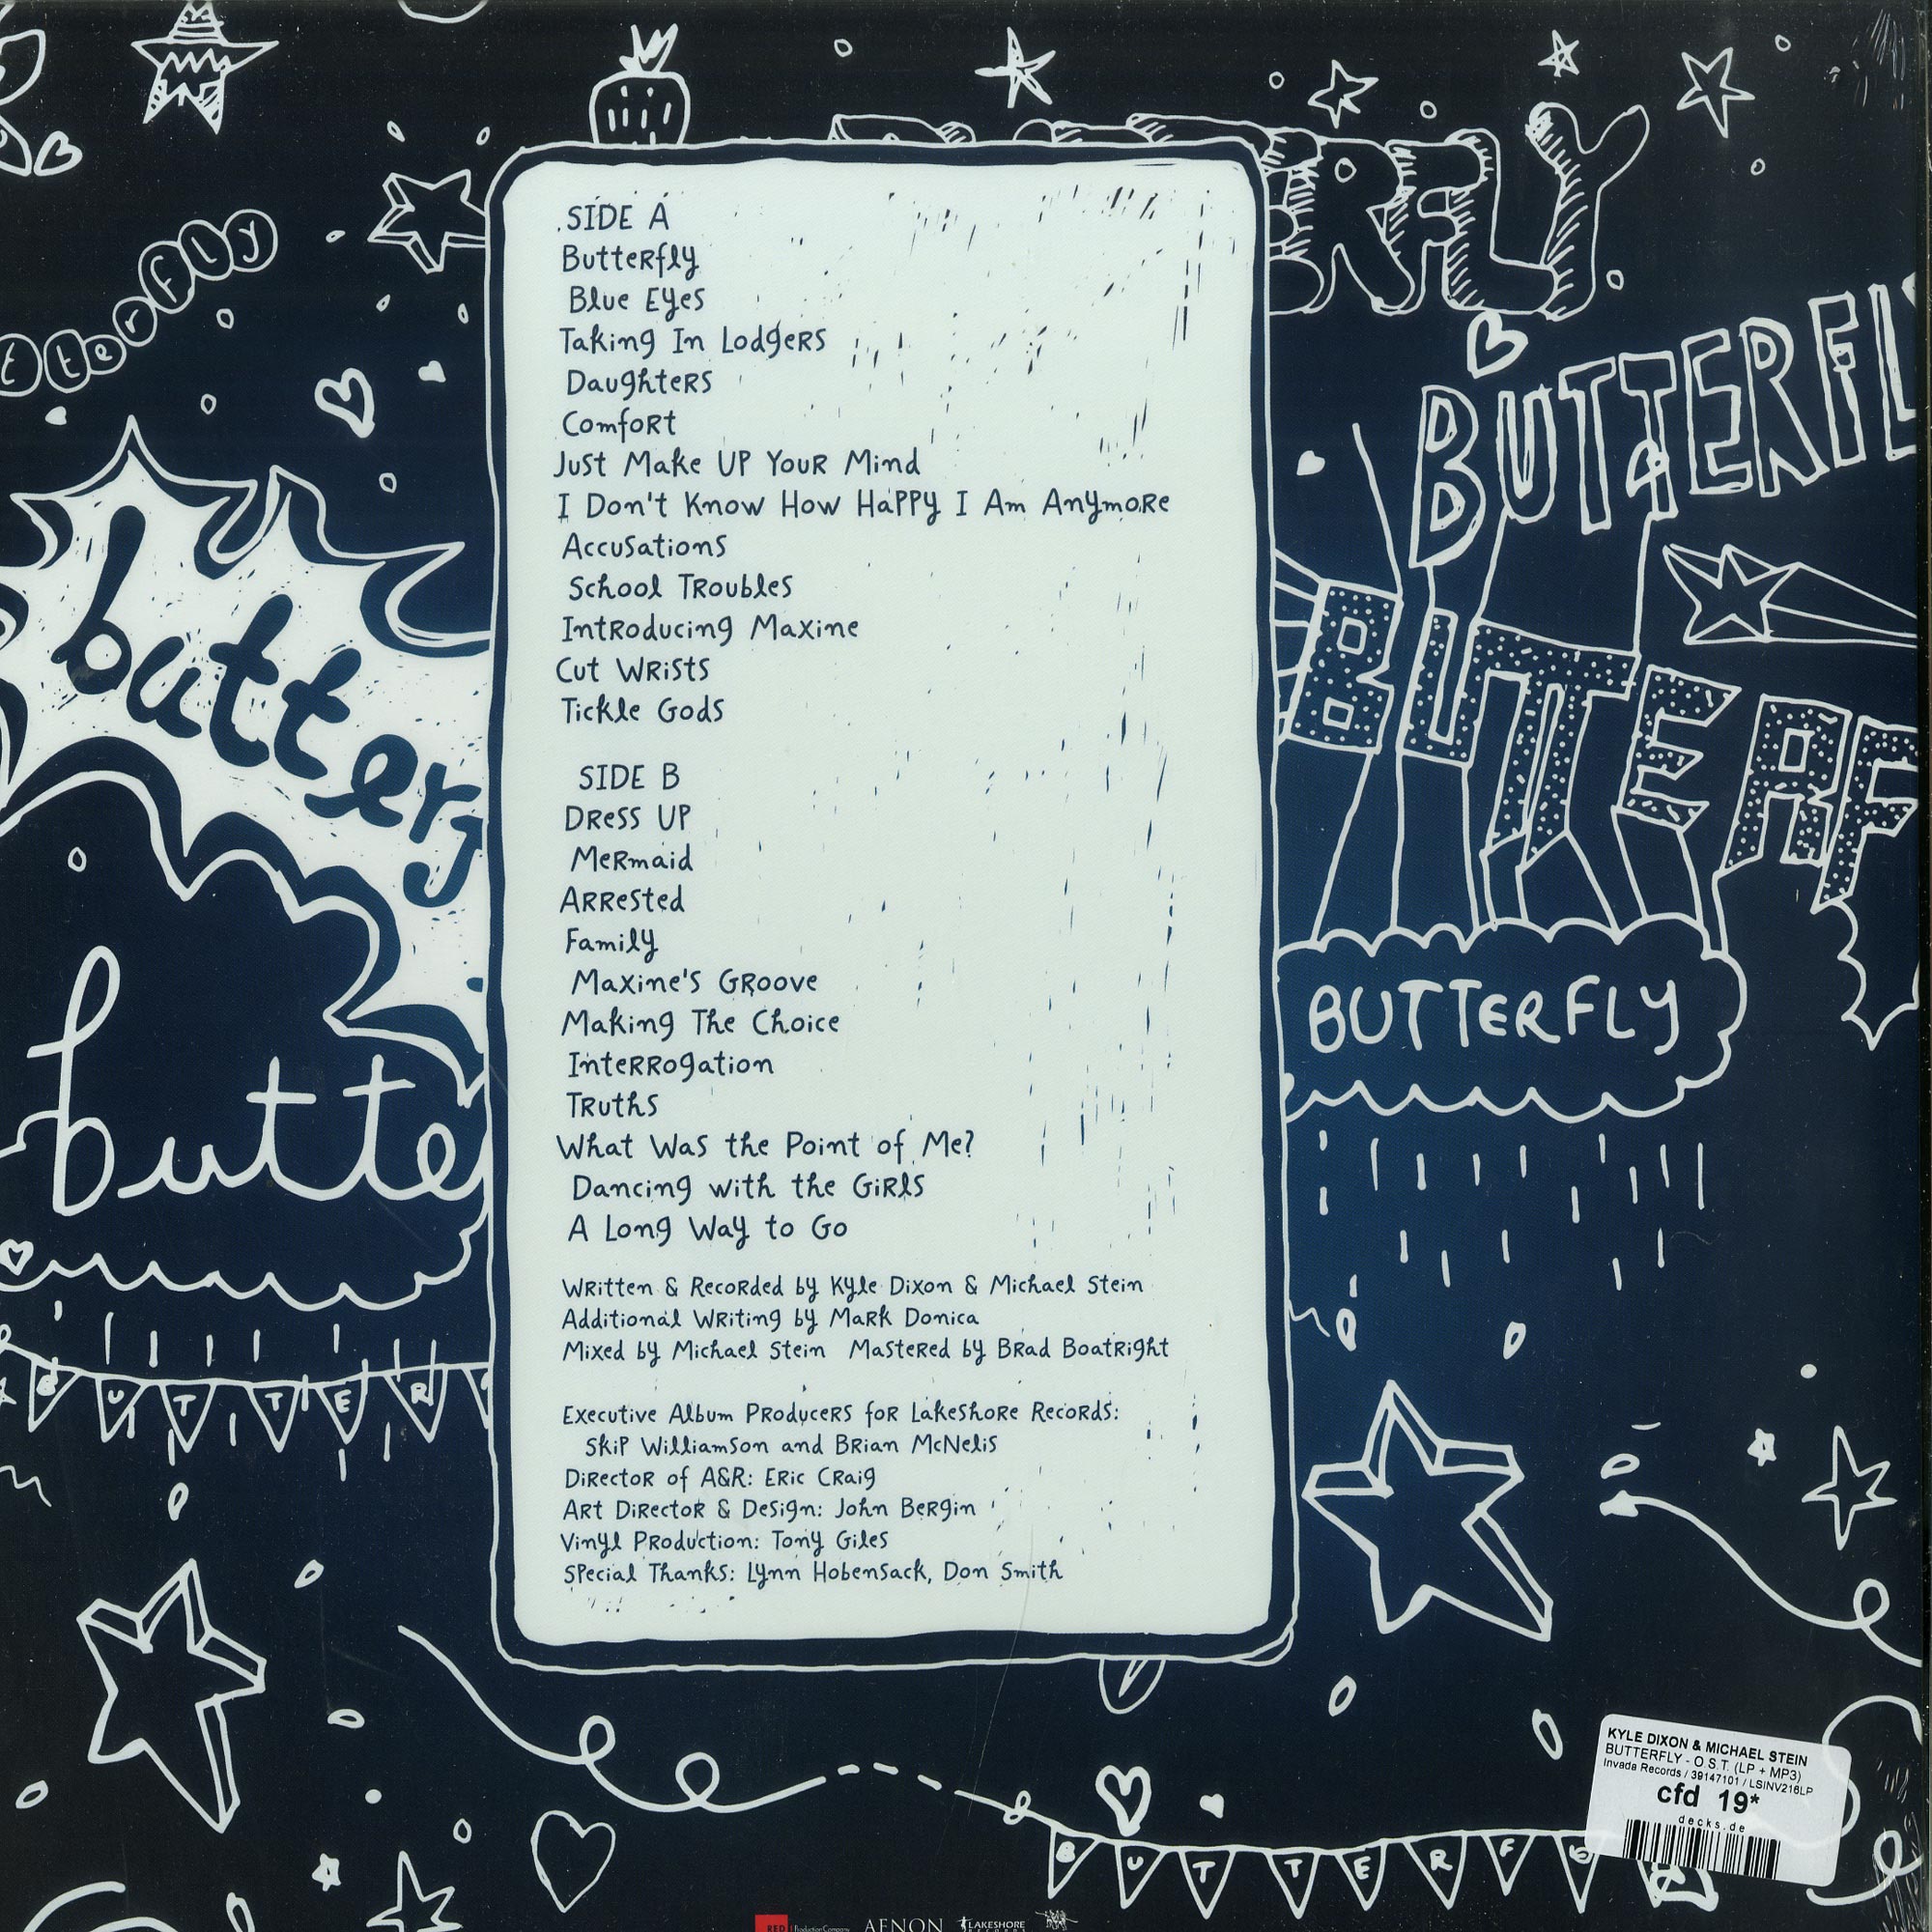 SIDE A
Butterfly
Blue Eyes
Taking In Lodgers
Daughters
Comfort
Just Make Up Your Mind
I Don't Know How Happy I Am Anymore
Accusations
School Troubles
Introducing Maxine
Cut Wrists
Tickle Gods
SIDE B
Dress Up
Mermaid
Arrested
Family
Maxine's Groove
Making The Choice
Interrogation
Truths
What Was the Point of Me?
Dancing with the Girls
A Long Way to Go
Written & Recorded by Kyle Dixon & Michael Stein
Additional Writing by Mark Donica
Mixed by Michael Stein Mastered by Brad Boatright
Executive Album Producers for Lakeshore Records:
Skip Williamson and Brian McNelis
Director of A&R: Eric Craig
Art Director & Design: John Bergin
Vinyl Production: Tony Giles
Special Thanks: Lynn Hobensack, Don Smith
tterfly
butterf
butte
BUTTER
ERFLY
BUTTERFL
BUTTERF
BUTTERFLY
BUTTERF
KYLE DIXON & MICHAEL STEIN
BUTTERFLY - O.S.T. (LP + MP3)
Invada Records / 39147101 / LSINV216LP
cfd 19*
decks.de
RED Production Company
AENON
LAKESHORE
RECORDS